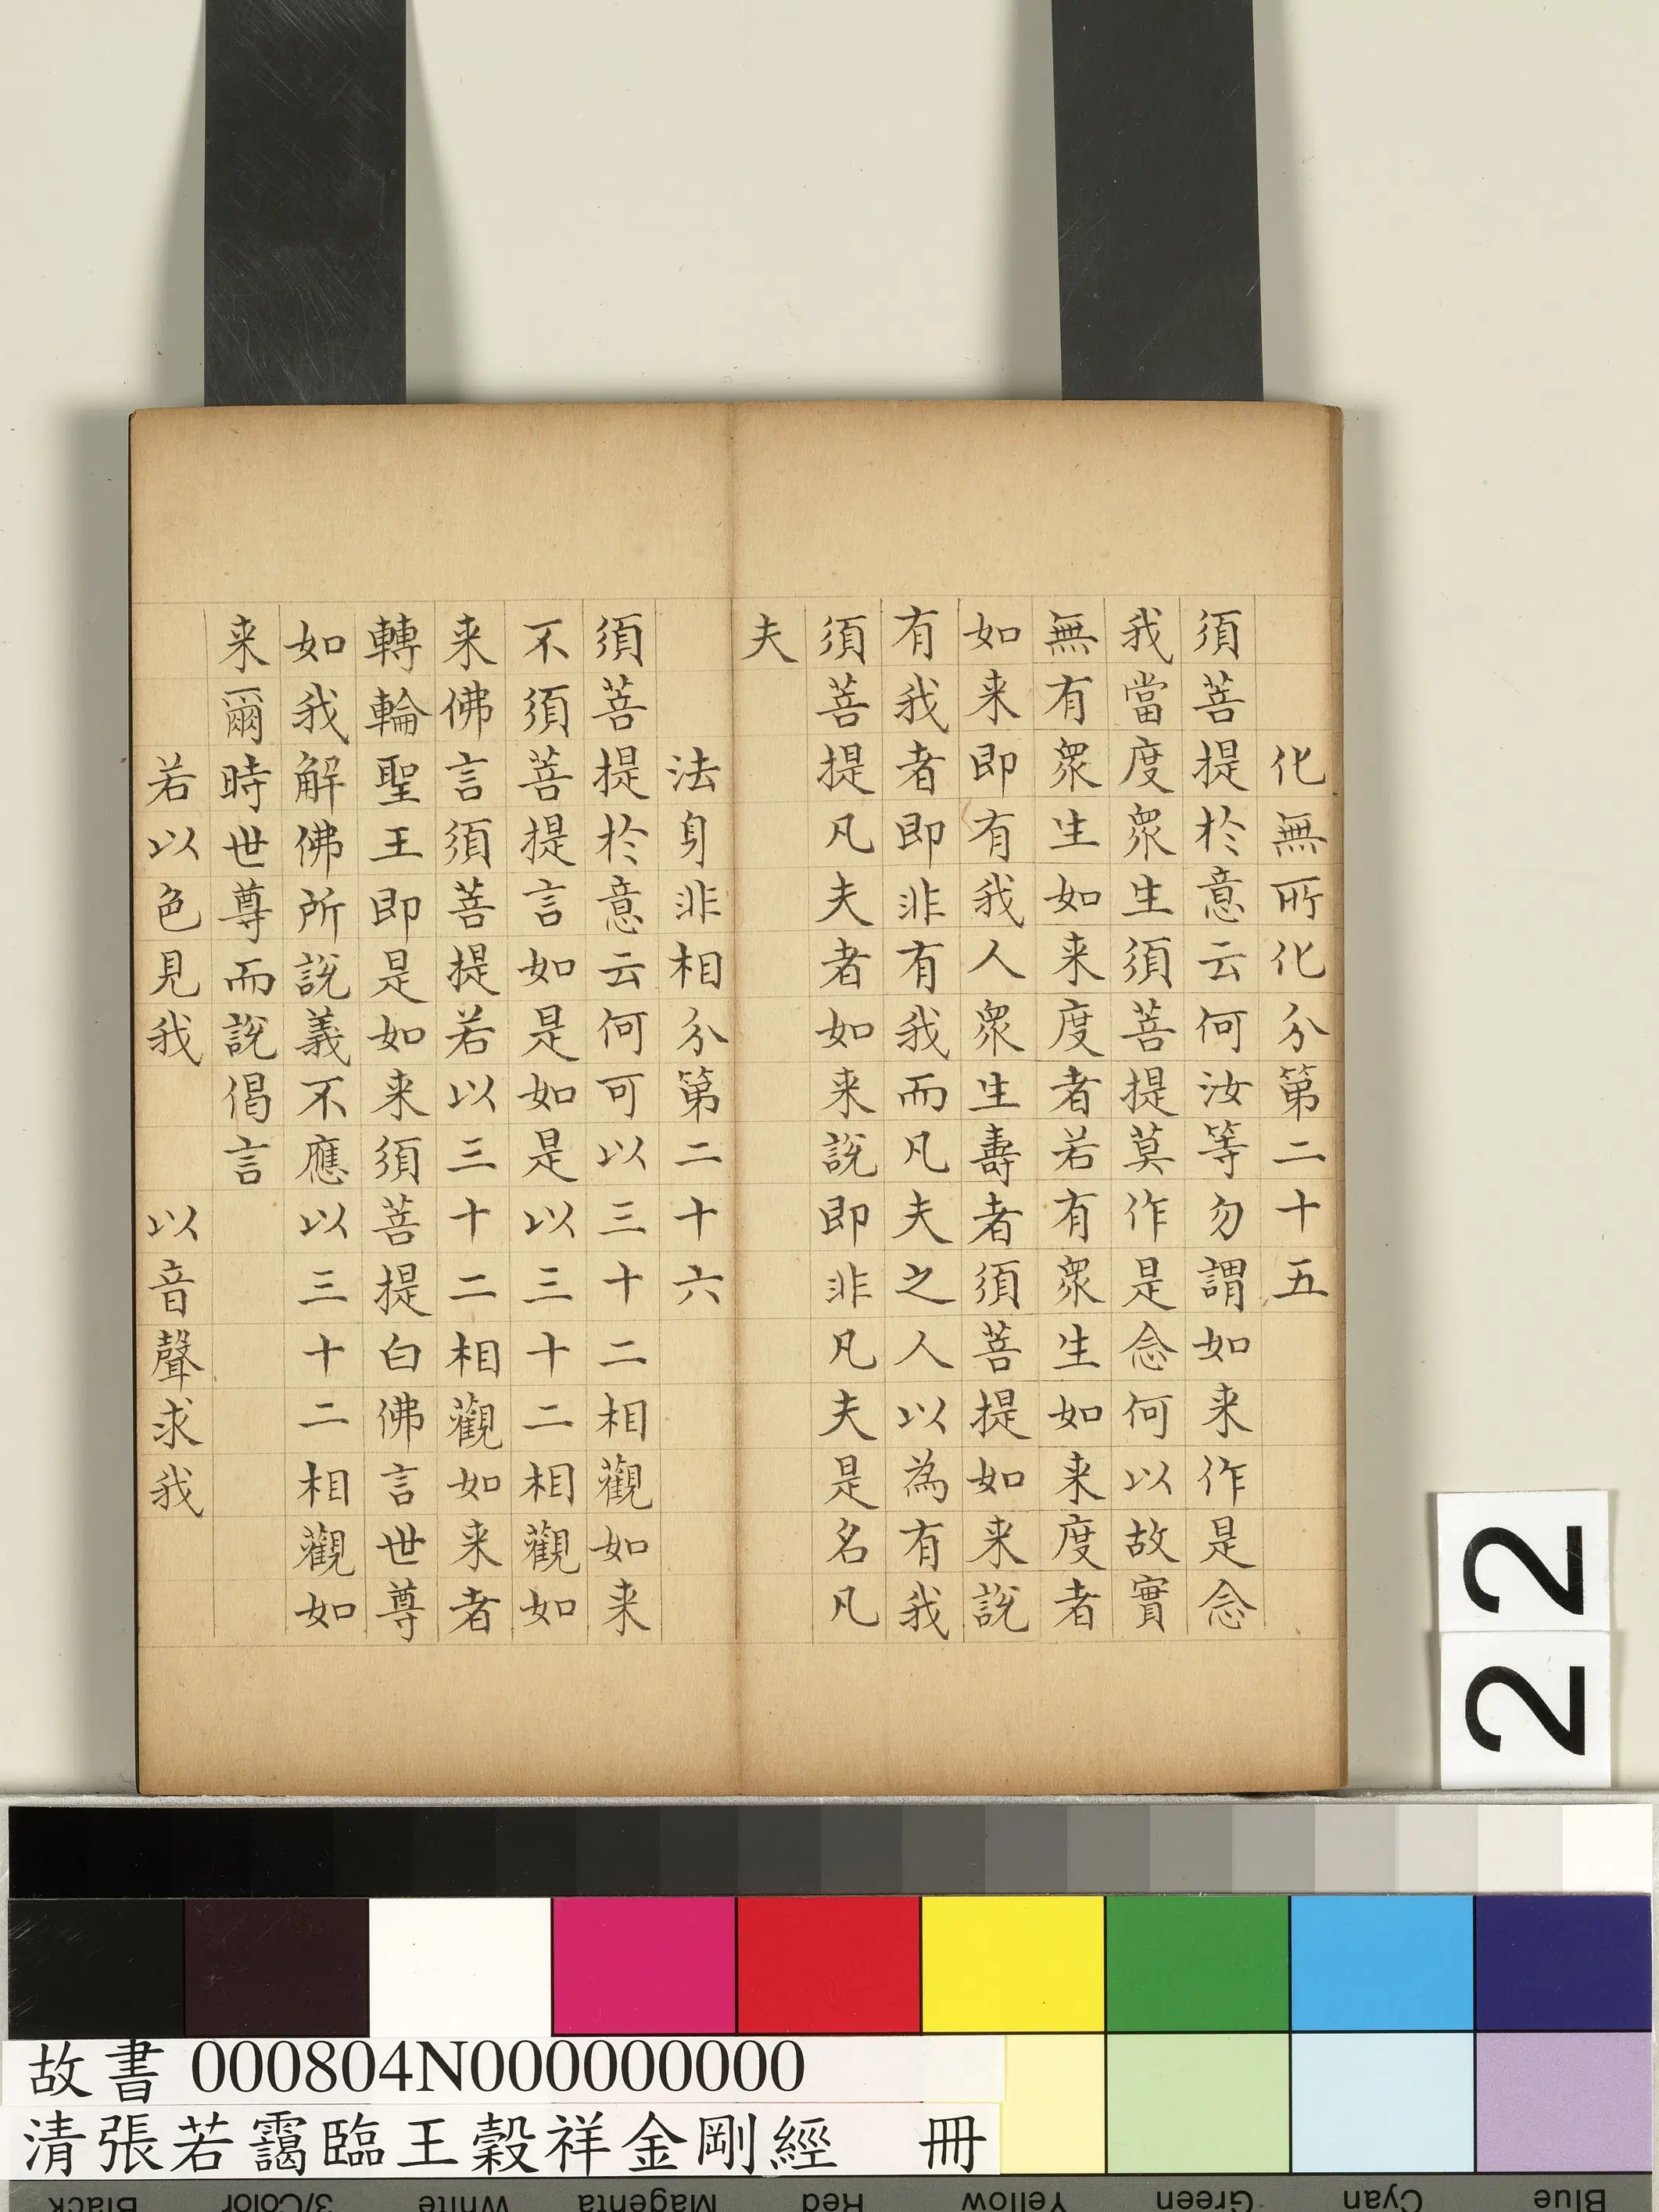 化無所化分第二十五
須菩提於意云何汝等勿謂如来作是念
我當度衆生須菩提莫作是念何以故實
無有衆生如来度者若有衆生如来度者
如来即有我人衆生壽者須菩提如来說
有我者即非有我而凡夫之人以為有我
須菩提凡夫者如来說即非凡夫是名凡
夫
法身非相分第二十六
須菩提於意云何可以三十二相觀如来
不須菩提言如是如是以三十二相觀如
来佛言須菩提若以三十二相觀如来者
轉輪聖王即是如来須菩提白佛言世尊
如我解佛所說義不應以三十二相觀如
来爾時世尊而說偈言
若以色見我　以音聲求我
22
故書 000804N000000000
清張若靄臨王穀祥金剛經　冊
Black 3/Color White Magenta Red Yellow Green Cyan Blue